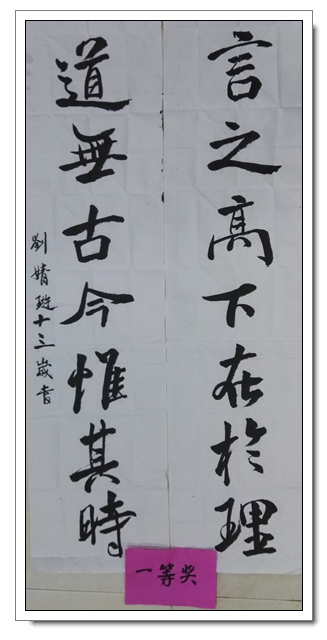 言之高下在於理
道無古今惟其時
劉婧璇十三歲書
一等奖